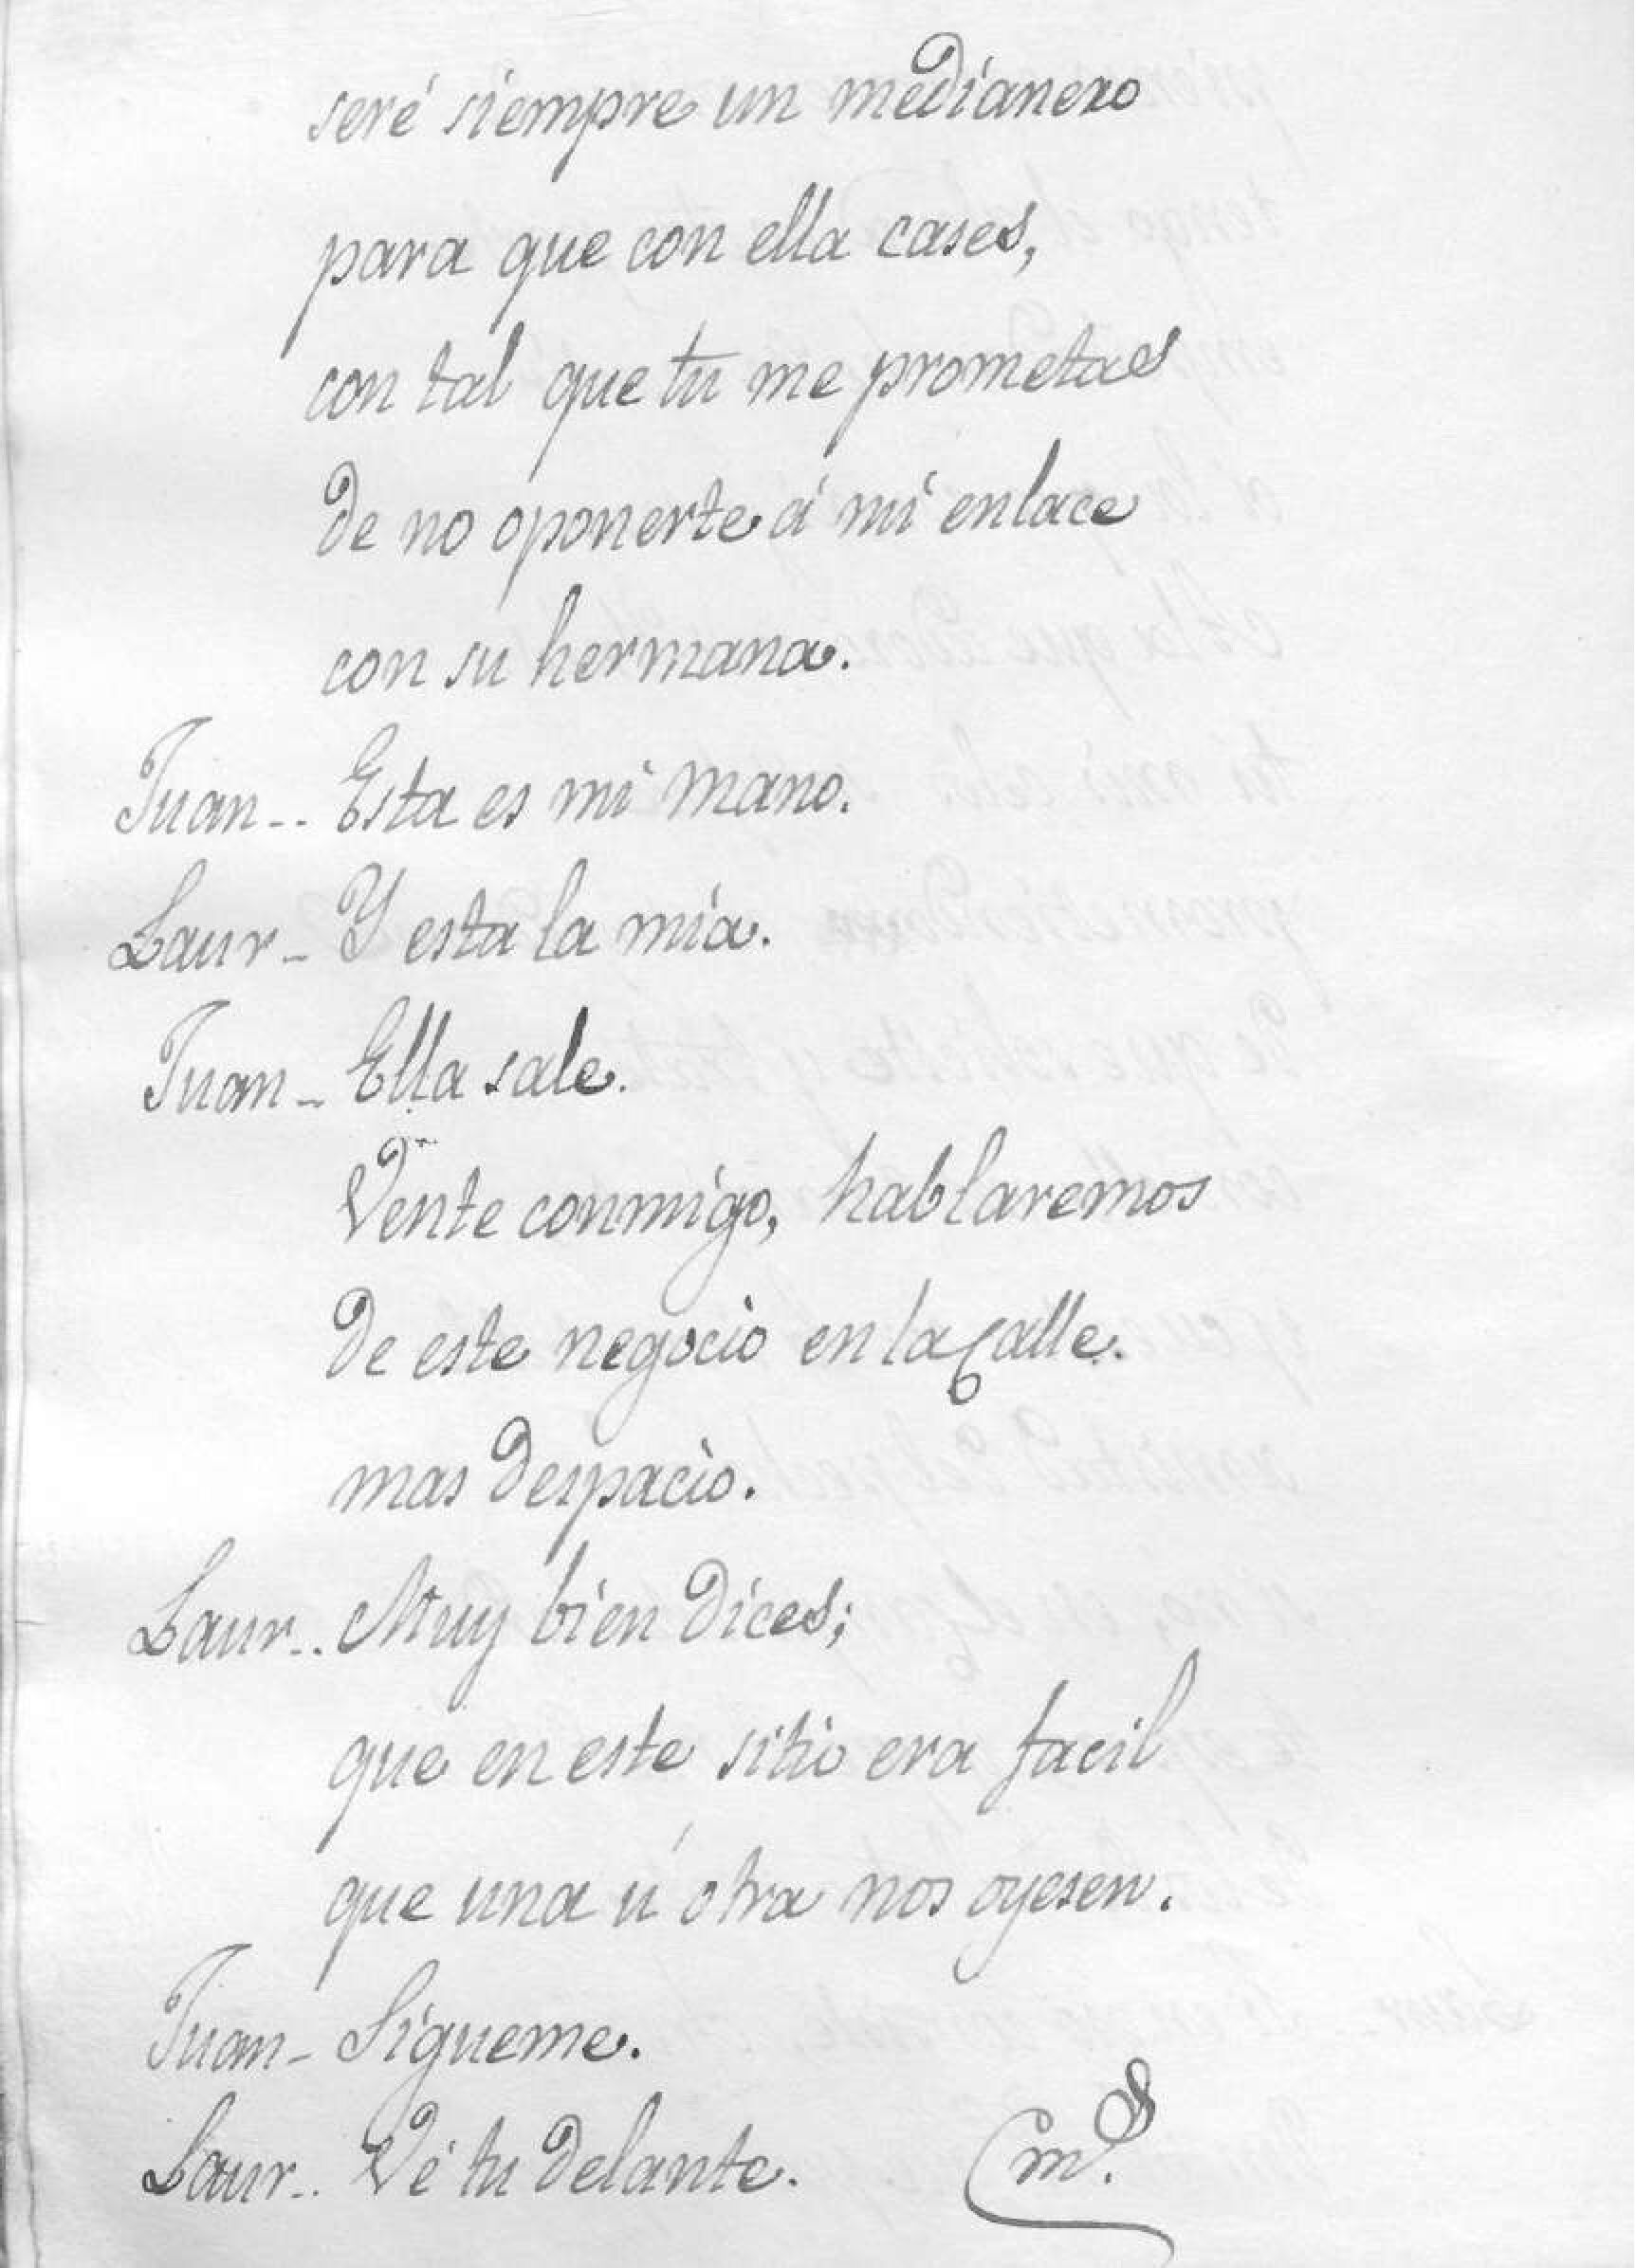 seré siempre un medianero
para que con ella cases,
con tal que tu me prometas
de no oponerte á mi enlace
con su hermana.
Juan-- Esta es mi mano.
Laur- Y esta la mía.
Juan- Ella sale.
Vente conmigo, hablaremos
de este negocio en la Calle.
mas despacio.
Laur.. Muy bien dices;
que en este sitio era facil
que una ú otra nos oyesen.
Juan- Sigueme.
Laur.. Vé tu delante.